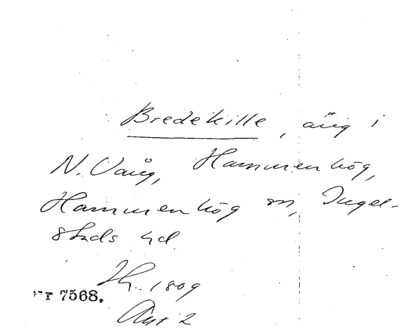 Bredekille, äng i
N. Vång, Hammenhög,
Hammenhög sn, Ingel-
stads hd.
1809
Nr 7568.
Akt 2